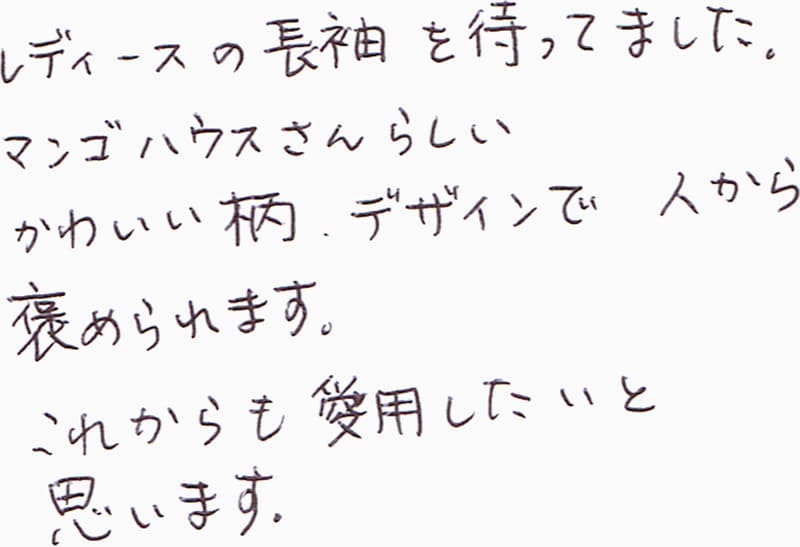 レディースの長袖を待ってました。
マンゴハウスさんらしい
かわいい柄.デザインで 人から
褒められます。
これからも愛用したいと
思います.